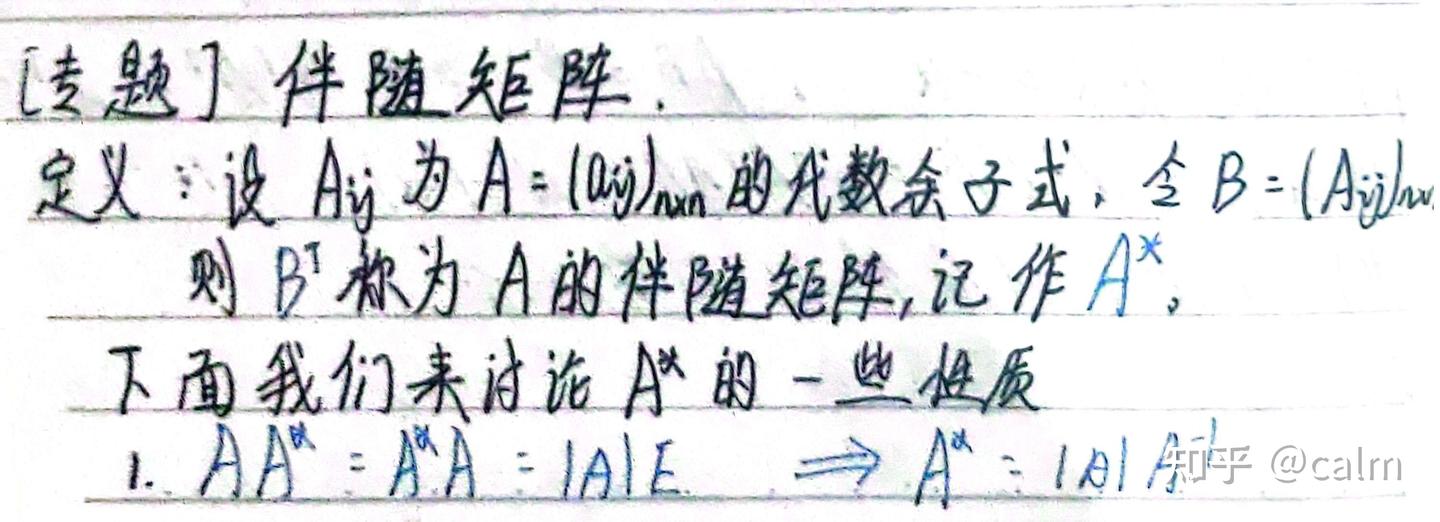 [专题] 伴随矩阵.
定义:设 Aij 为 A=(aij)n×n 的代数余子式,令 B=(Aij)n×
则 Bᵀ 称为 A 的伴随矩阵,记作 A*。
下面我们来讨论 A* 的一些性质
1. AA* = A*A = |A|E ⟹ A* = |A|A⁻¹
知乎 @calm